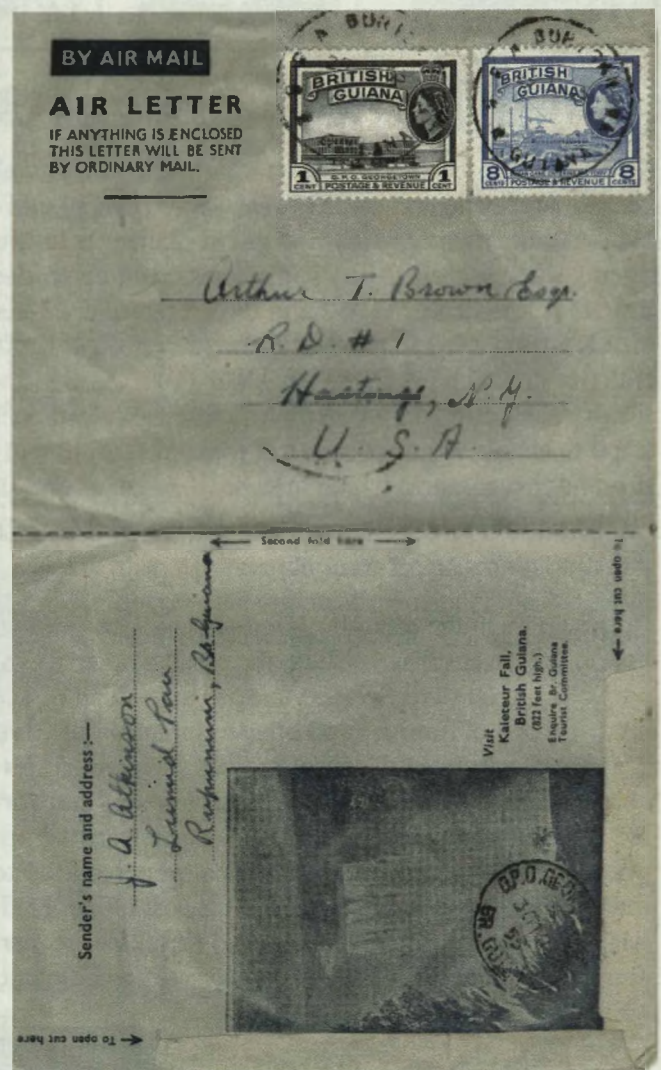 BY AIR MAIL
AIR LETTER
IF ANYTHING IS ENCLOSED
THIS LETTER WILL BE SENT
BY ORDINARY MAIL.
BRITISH
GUIANA
1 CENT
G.P.O. GEORGETOWN
POSTAGE & REVENUE
1 CENT
BRITISH
GUIANA
8 CENTS
POSTAGE & REVENUE
8 CENTS
Arthur T. Brown Esqr.
R. D. # 1
Hastings, N.Y.
U. S. A.
Second fold here
To open cut here
Sender's name and address :—
J. A. Atkinson
Lumid Pau
Rupununi, Br Guiana
Visit
Kaieteur Fall,
British Guiana.
(822 feet high.)
Enquire Br. Guiana
Tourist Committee.
G.P.O. GEO
BR. GUI
To open cut here